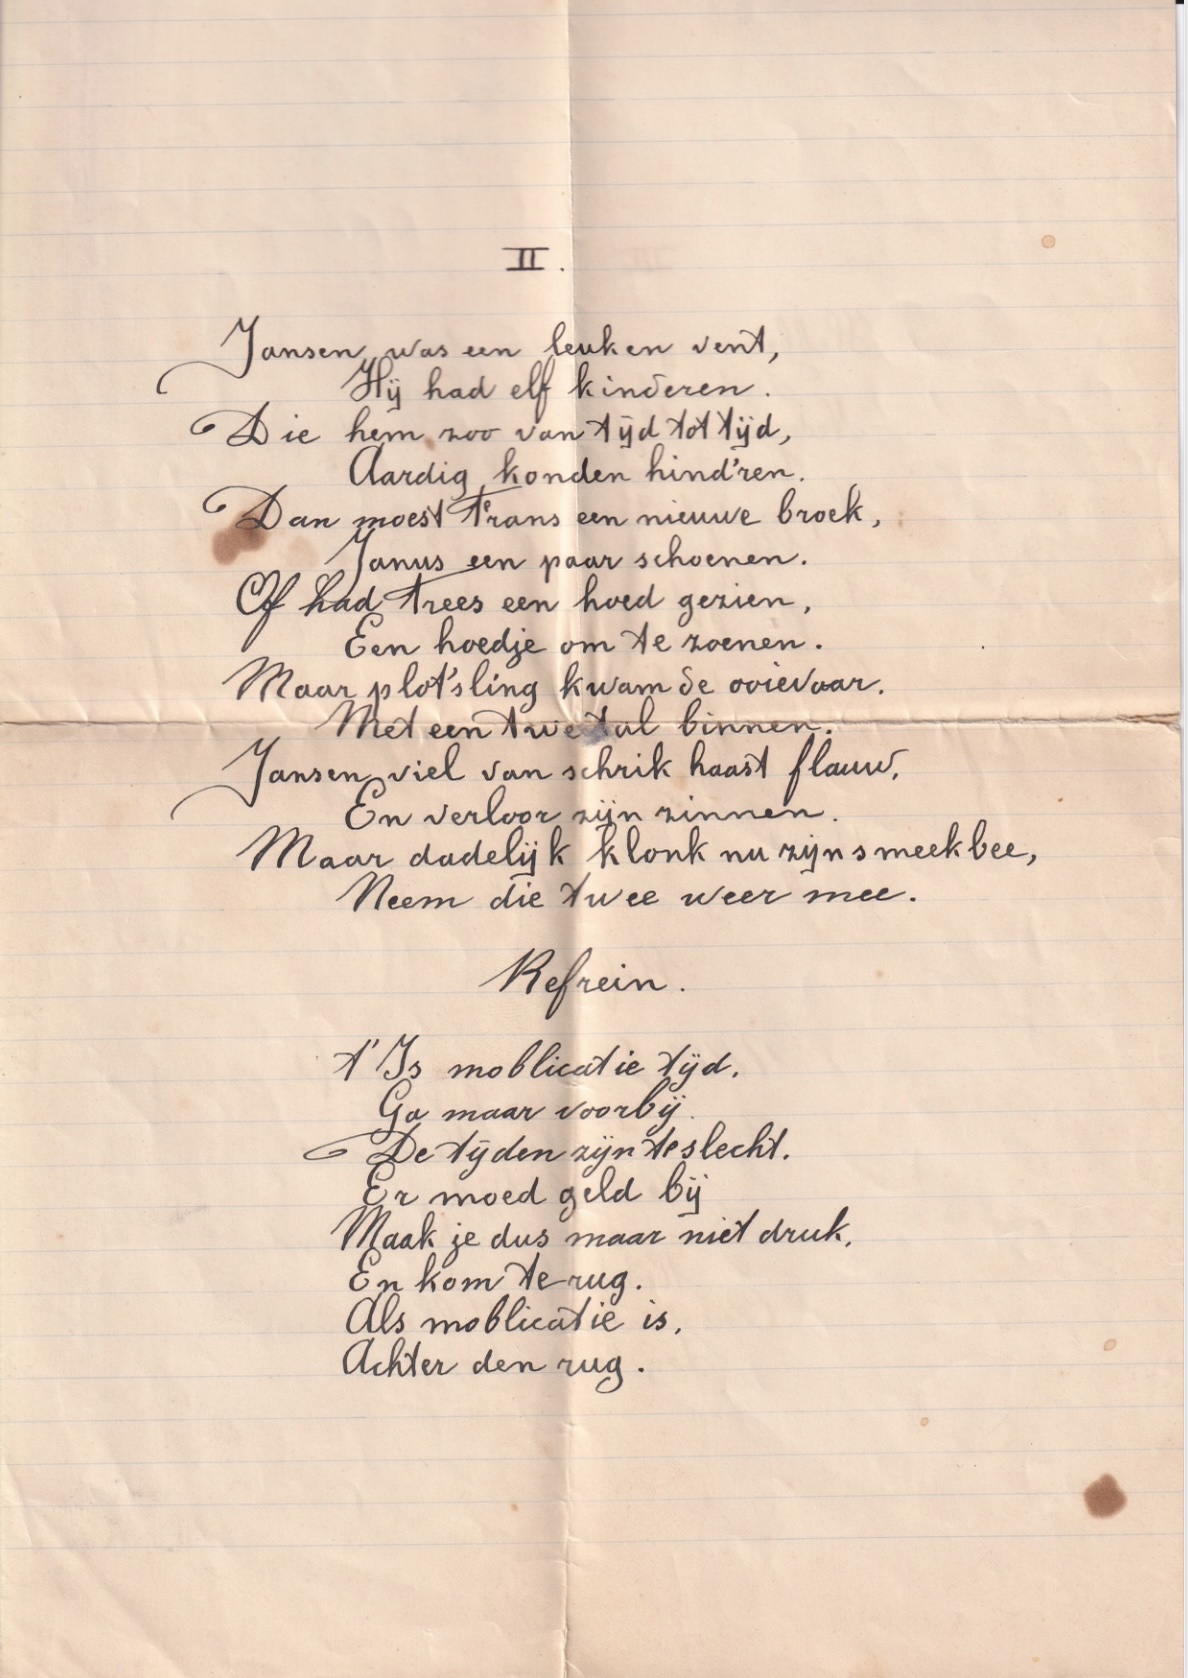 II.
Jansen was een leuken vent,
Hij had elf kinderen.
Die hem zoo van tijd tot tijd,
Aardig konden hind'ren.
Dan moest Frans een nieuwe broek,
Janus een paar schoenen.
Of had Trees een hoed gezien,
Een hoedje om te zoenen.
Maar plot'sling kwam de ooievaar.
Met een twetal binnen.
Jansen viel van schrik haast flauw,
En verloor zijn zinnen.
Maar dadelijk klonk nu zijn smeekbee,
Neem die twee weer mee.
Refrein.
t' Is moblicatie tijd.
Ga maar voorbij.
De tijden zijn te slecht.
Er moed geld bij
Maak je dus maar niet druk,
En kom terug.
Als moblicatie is,
Achter den rug.